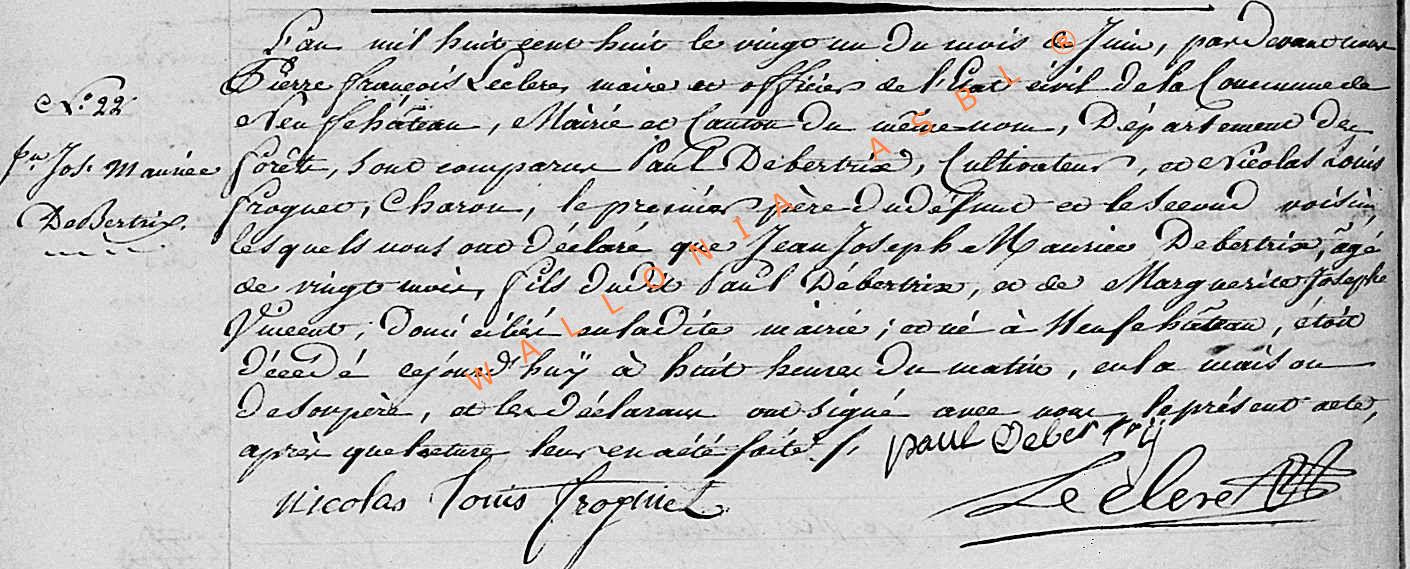 L'an mil huit cent huit le vingt un du mois de Juin, pardevant nous
Pierre françois Leclere, maire et officier de l'Etat civil de la Commune de
N.° 22
Neufchâteau, Mairie et Canton du même nom, Département des
forêt, sont comparus Paul Debertrix, Cultivateur, et Nicolas Louis
Jos. Maurice
froguet, Charon, le premier père du défunt et le second voisin,
DeBertrix.
lesquels nous ont déclaré que Jean Joseph Maurice Debertrix, âgé
de vingt mois, fils dudit Paul Débertrix, et de Marguerite Josephe
Vincent, domicilié en ladite mairie; et né à Neufchâteau, étoit
décédé cejourd'huÿ à huit heures du matin, en la maison
de son père, et les déclarans ont signé avec nous le présent acte,
après que lecture leur en a été faite./.
paul Debertrÿ
Nicolas Louis froguet
Leclere
WALLONIA ASBL ®